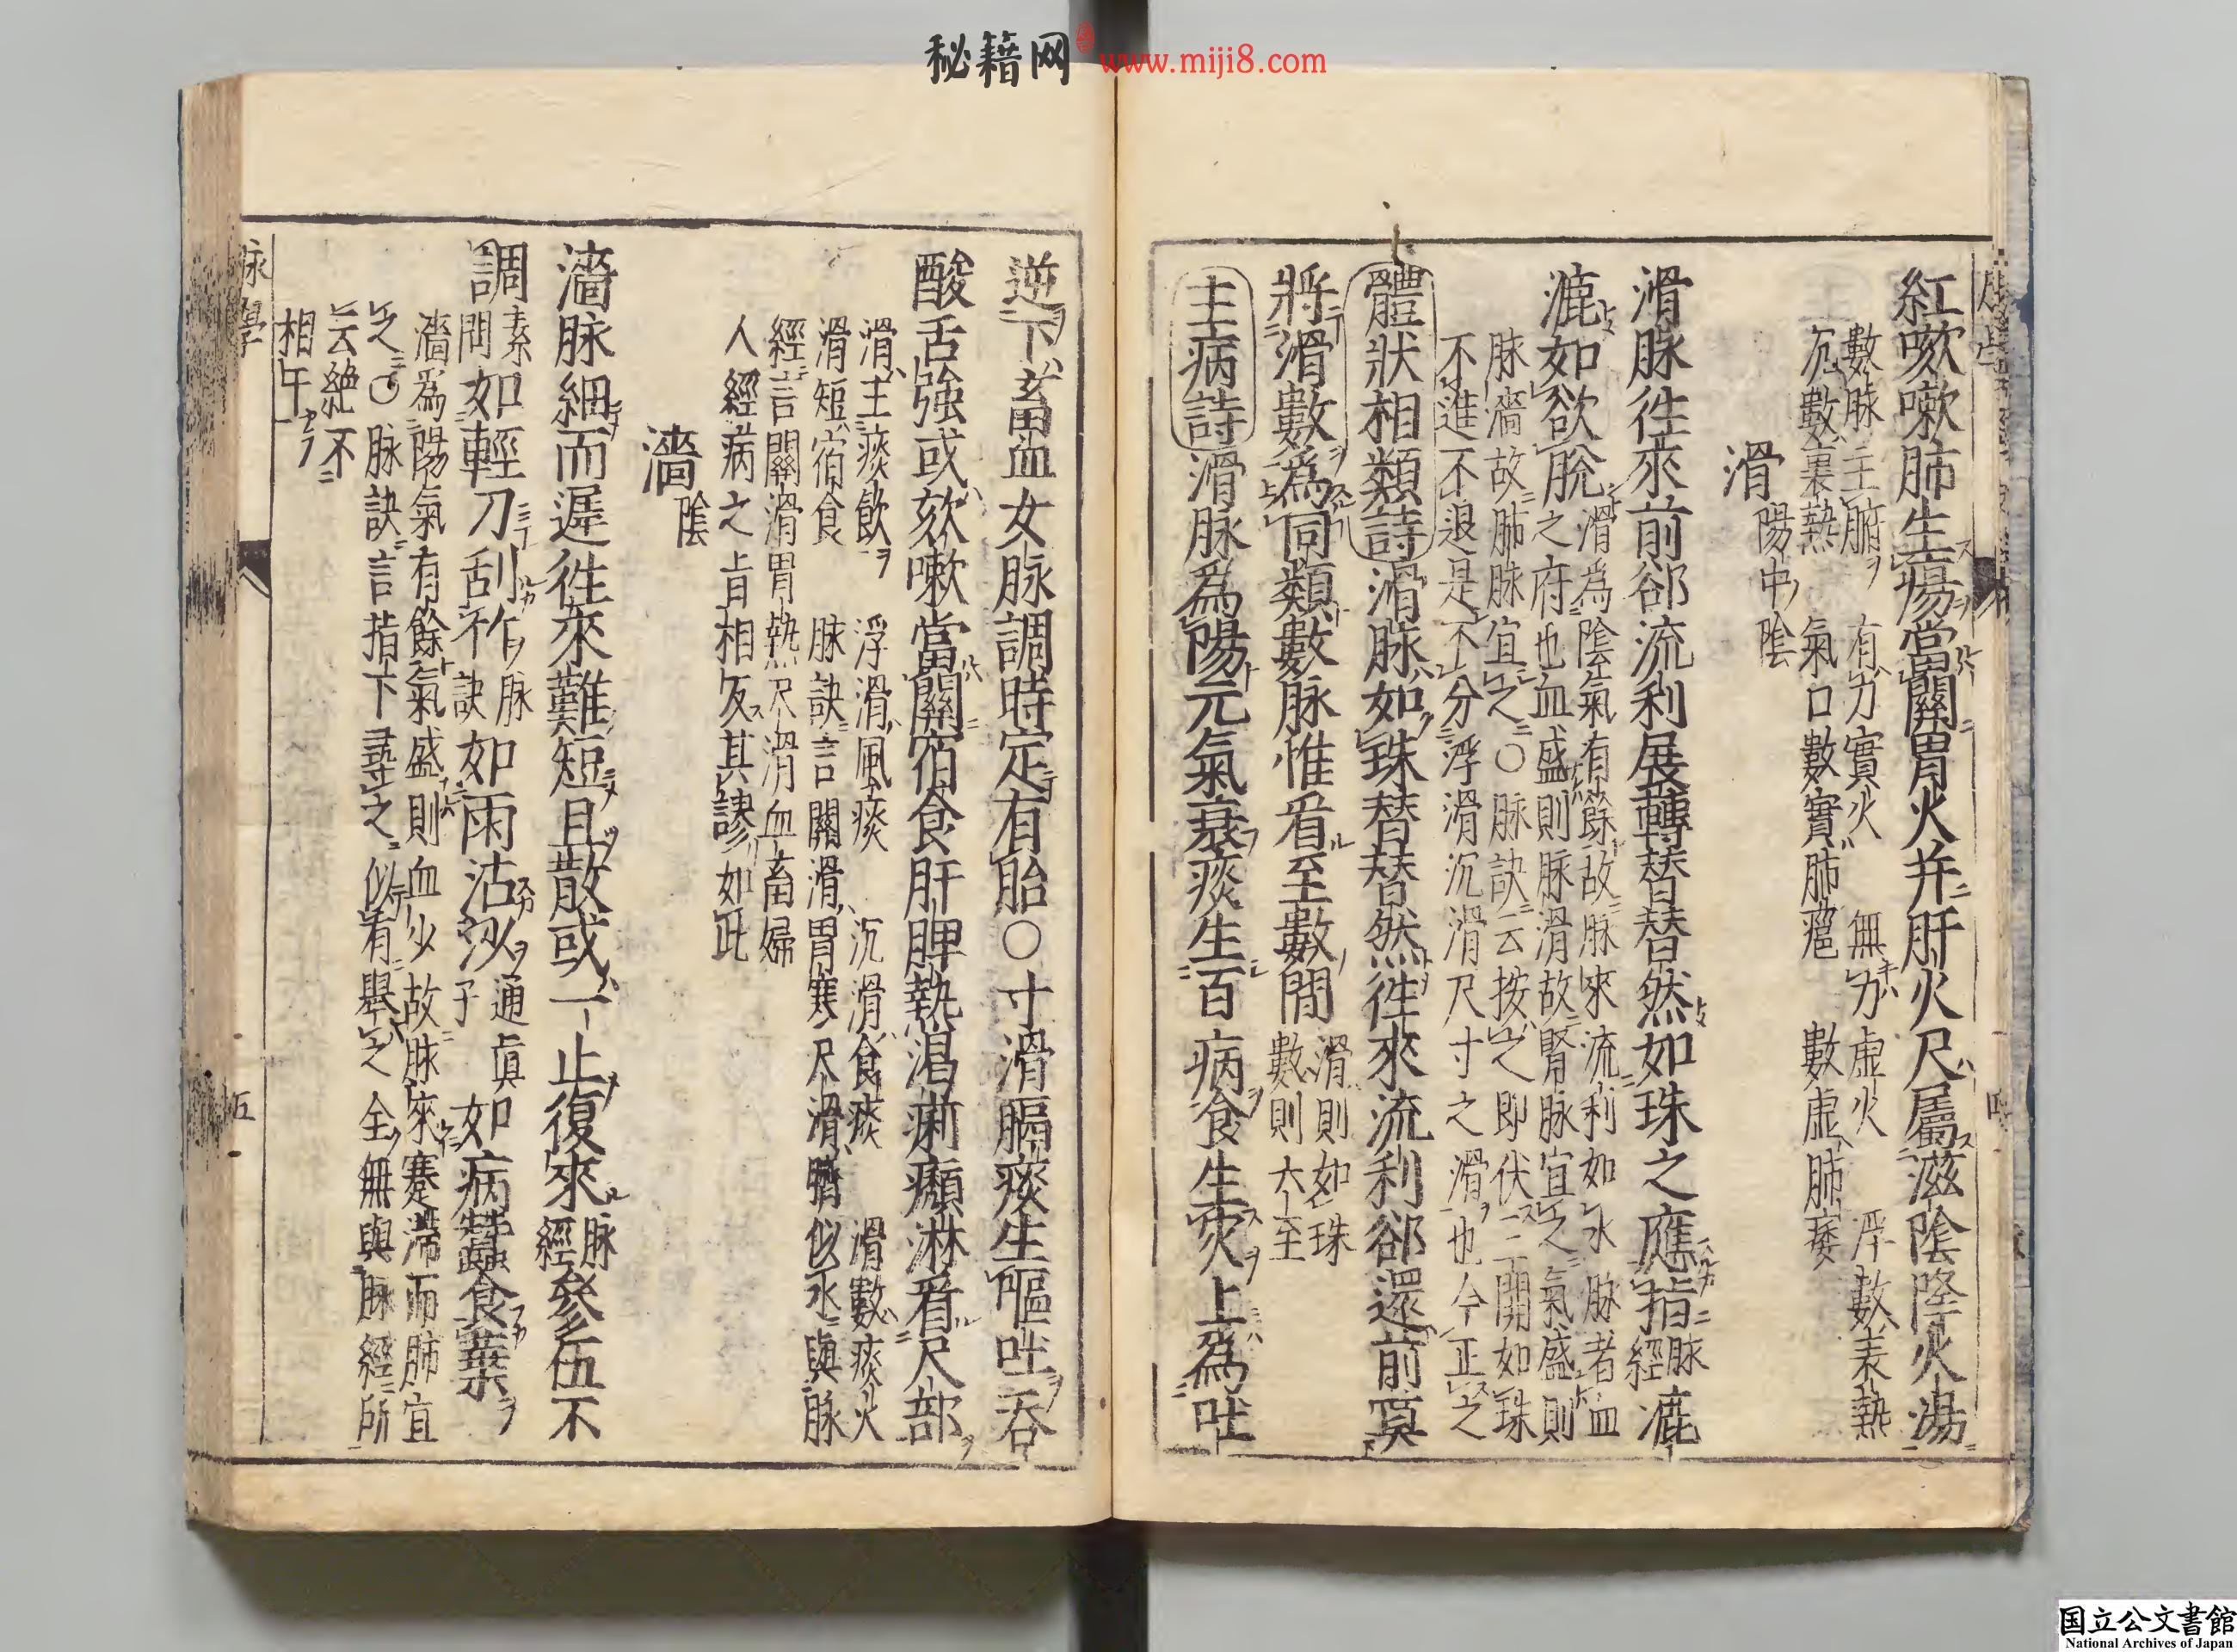 秘籍网 www.miji8.com
紅嗽嗽肺生瘍當關胃火并肝火尺屬滋陰降火湯
數脉主腑 有力實火 無力虛火 浮數表熱
沉數裏熱 氣口數實肺癰 數虛肺痿
滑 陽中陰
滑脉徃來前卻流利展轉替替然如珠之應指 脉經 漉
漉如欲脫
滑爲陰氣有餘故脉來流利如水脉者血
之府也血盛則脉滑故腎脉宜之氣盛則
脉濇故肺脉宜之○脉訣云按之即伏三關如珠
不進不退是不分浮滑沉滑尺寸之滑也今正之
體狀相類詩 滑脉如珠替替然徃來流利卻還前莫
將滑數爲同類數脉惟看至數間 滑則如珠
數則六至
主病詩 滑脉爲陽元氣衰痰生百病食生灾上爲吐
逆下畜血女脉調時定有胎○寸滑膈痰生嘔吐吞
酸舌強或欬嗽當關宿食肝脾熱渴痢㿗淋看尺部
滑主痰飲 浮滑風痰 沉滑食痰 滑數痰火
滑短宿食 脉訣言關滑胃寒尺滑臍似氷與脉
經言關滑胃熱尺滑血畜婦
人經病之旨相反其謬如此
濇 陰
濇脉細而遲徃來難短且散或一止復來 脉經 參伍不
調 素問 如輕刀刮竹 脉訣 如雨沾沙 通眞子 如病蠶食葉
濇爲陽氣有餘氣盛則血少故脉來蹇滯而肺宜
之○脉訣言指下尋之似有舉之全無與脉經所
云絶不
相干
脉學
五
国立公文書館
National Archives of Japan